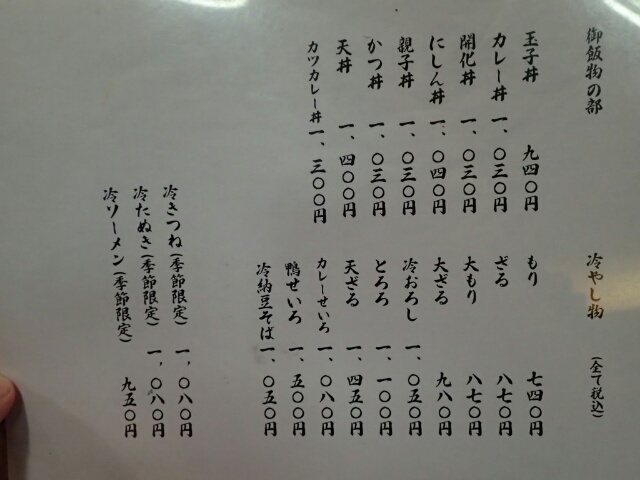 御飯物の部
玉子丼 九四〇円
カレー丼 一、〇三〇円
開化丼 一、〇三〇円
にしん丼 一、〇四〇円
親子丼 一、〇三〇円
かつ丼 一、〇三〇円
天丼 一、四〇〇円
カツカレー丼 一、三〇〇円
冷やし物 (全て税込)
もり 七四〇円
ざる 八七〇円
大もり 八七〇円
大ざる 九八〇円
冷おろし 一、〇五〇円
とろろ 一、一〇〇円
天ざる 一、四五〇円
カレーせいろ 一、〇八〇円
鴨せいろ 一、五〇〇円
冷納豆そば 一、〇五〇円
冷きつね(季節限定) 一、〇八〇円
冷たぬき(季節限定) 一、〇八〇円
冷ソーメン(季節限定) 九五〇円